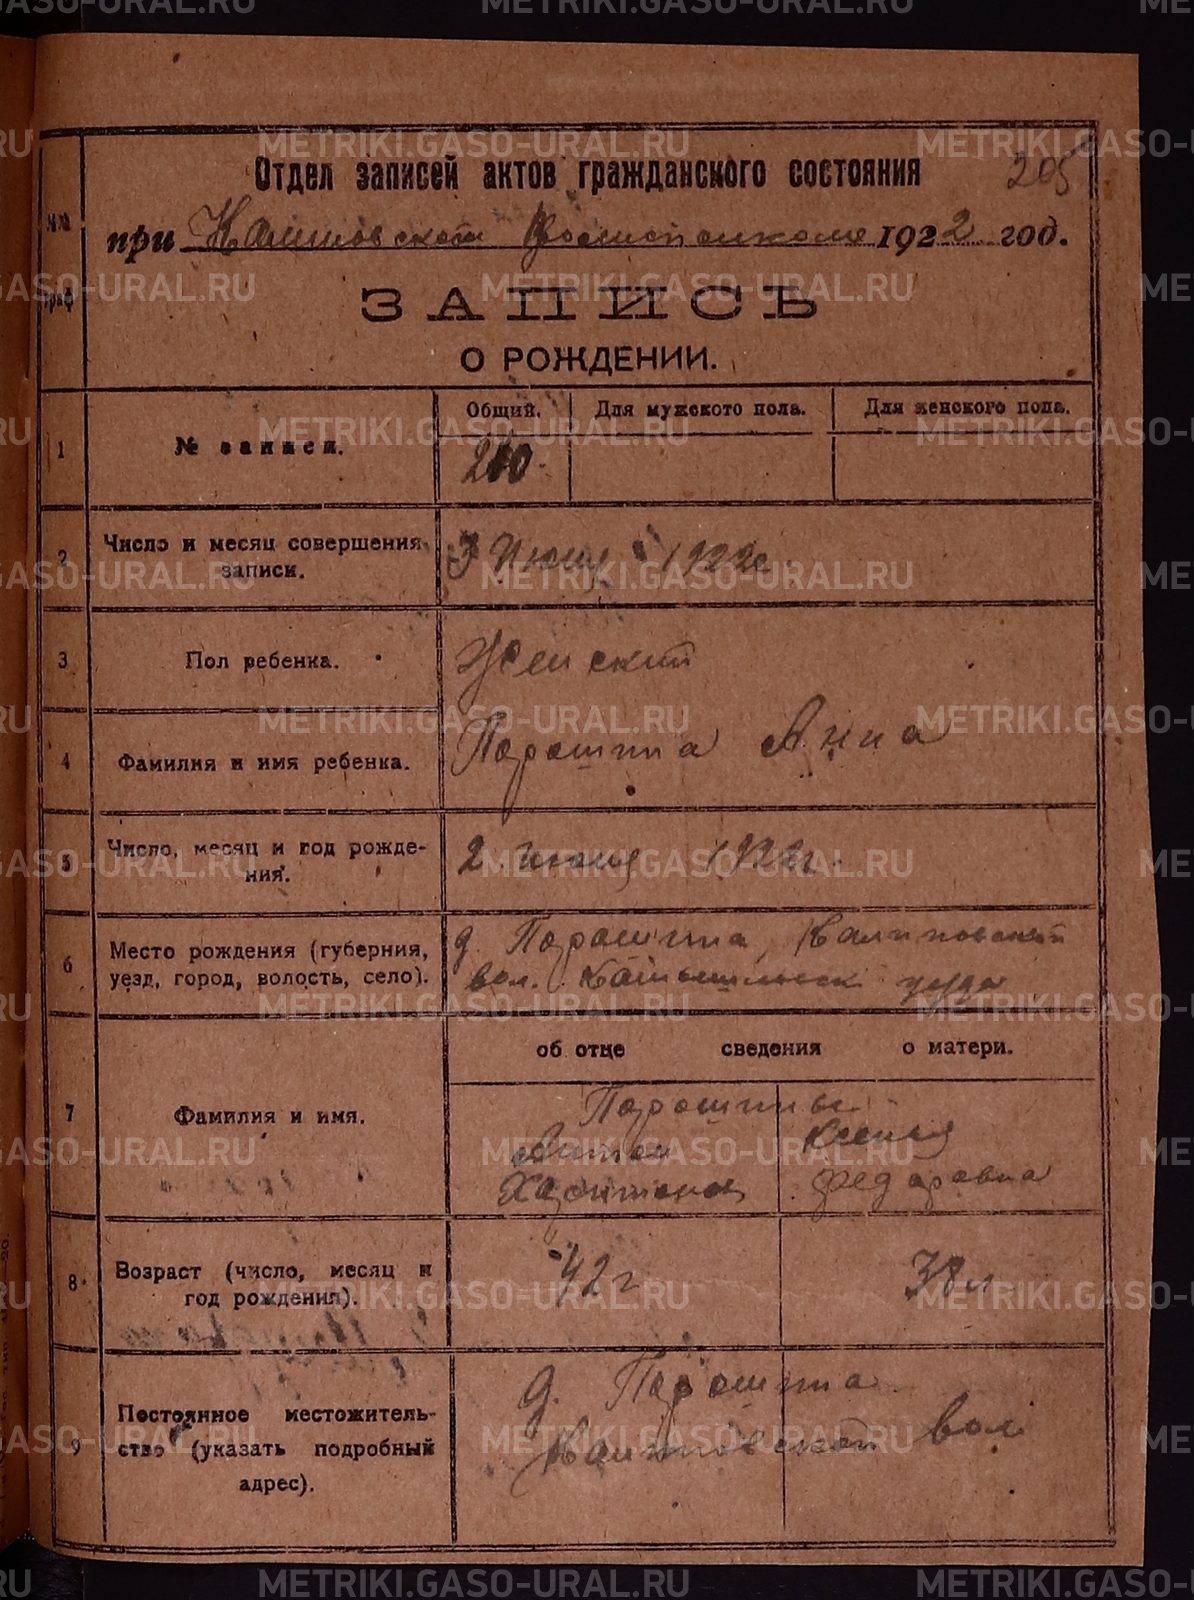 205
Отдел записей актов гражданского состояния
при Калиновском Волисполкоме 1922 год.
№№ граф
ЗАПИСЬ
О РОЖДЕНИИ.
Общий. Для мужского пола. Для женского пола.
1 № записи. 200.
2 Число и месяц совершения записи. 3 Июня 1922г.
3 Пол ребенка. Женский
4 Фамилия и имя ребенка. Паршина Анна
5 Число, месяц и год рожде-
ния. 2 июня 1922г.
6 Место рождения (губерния, д. Паршина, Калиновской
уезд, город, волость, село). вол. Камышловск уезда
об отце сведения о матери.
7 Фамилия и имя. Паршины
Антон Ксенья
Харитонов Федаровна
8 Возраст (число, месяц и
год рождения). 42 г 38 л
9 Постоянное местожитель-
ство (указать подробный
адрес). д. Паршина
Калиновской вол
METRIKI.GASO-URAL.RU